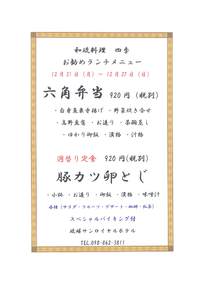 和琉料理 四季
お勧めランチメニュー
12月21日（月）～12月27日（日）
六角弁当 920円（税別）
・白身魚東寺揚げ ・野菜炊き合せ
・高野豆腐 ・お造り ・茶碗蒸し
・ゆかり御飯 ・漬物 ・汁物
週替り定食 920円（税別）
豚カツ卵とじ
・小鉢 ・お造り ・御飯 ・漬物 ・味噌汁
各種（サラダ・フルーツ・デザート・珈琲・紅茶）
スペシャルバイキング付
琉球サンロイヤルホテル
TEL 098-862-3811